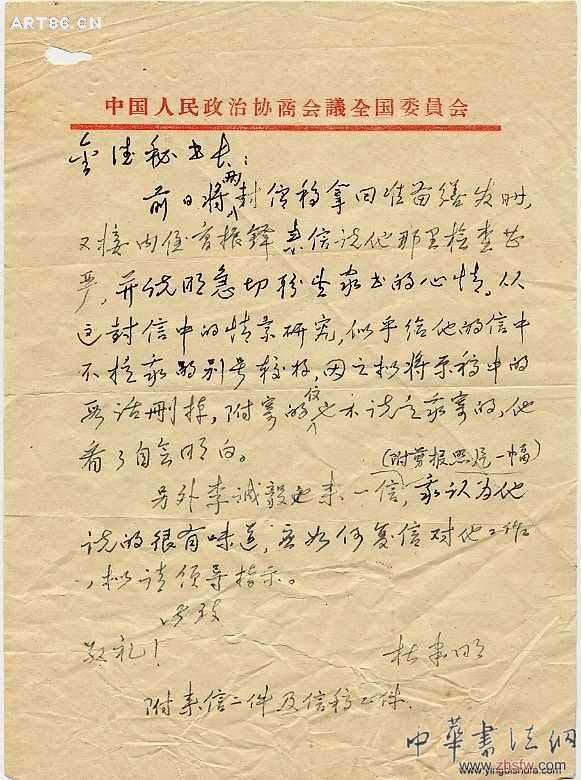 ART86.CN
中国人民政治协商会議全国委員会
金佳秘书长：
前日将两封信稿拿回准备缮发时，
又接内侄 振铎来信说他那里检查甚
严，并说明急切盼望家书的心情。从
这封信中的情景研究，似乎给他的信中
不提我的别号较好，因之拟将原稿中的
话删掉，附寄的信也不说是我寄的，他
看了自会明白。
(附剪报照片一幅)
另外李诚毅也来一信，我认为他
说的很有味道，应如何复信对他工作
，拟请领导指示。
此致
敬礼！ 杜聿明
附来信二件及信稿二件.
中華書法網
www.zhsfw.com
www.yingbishufa.com